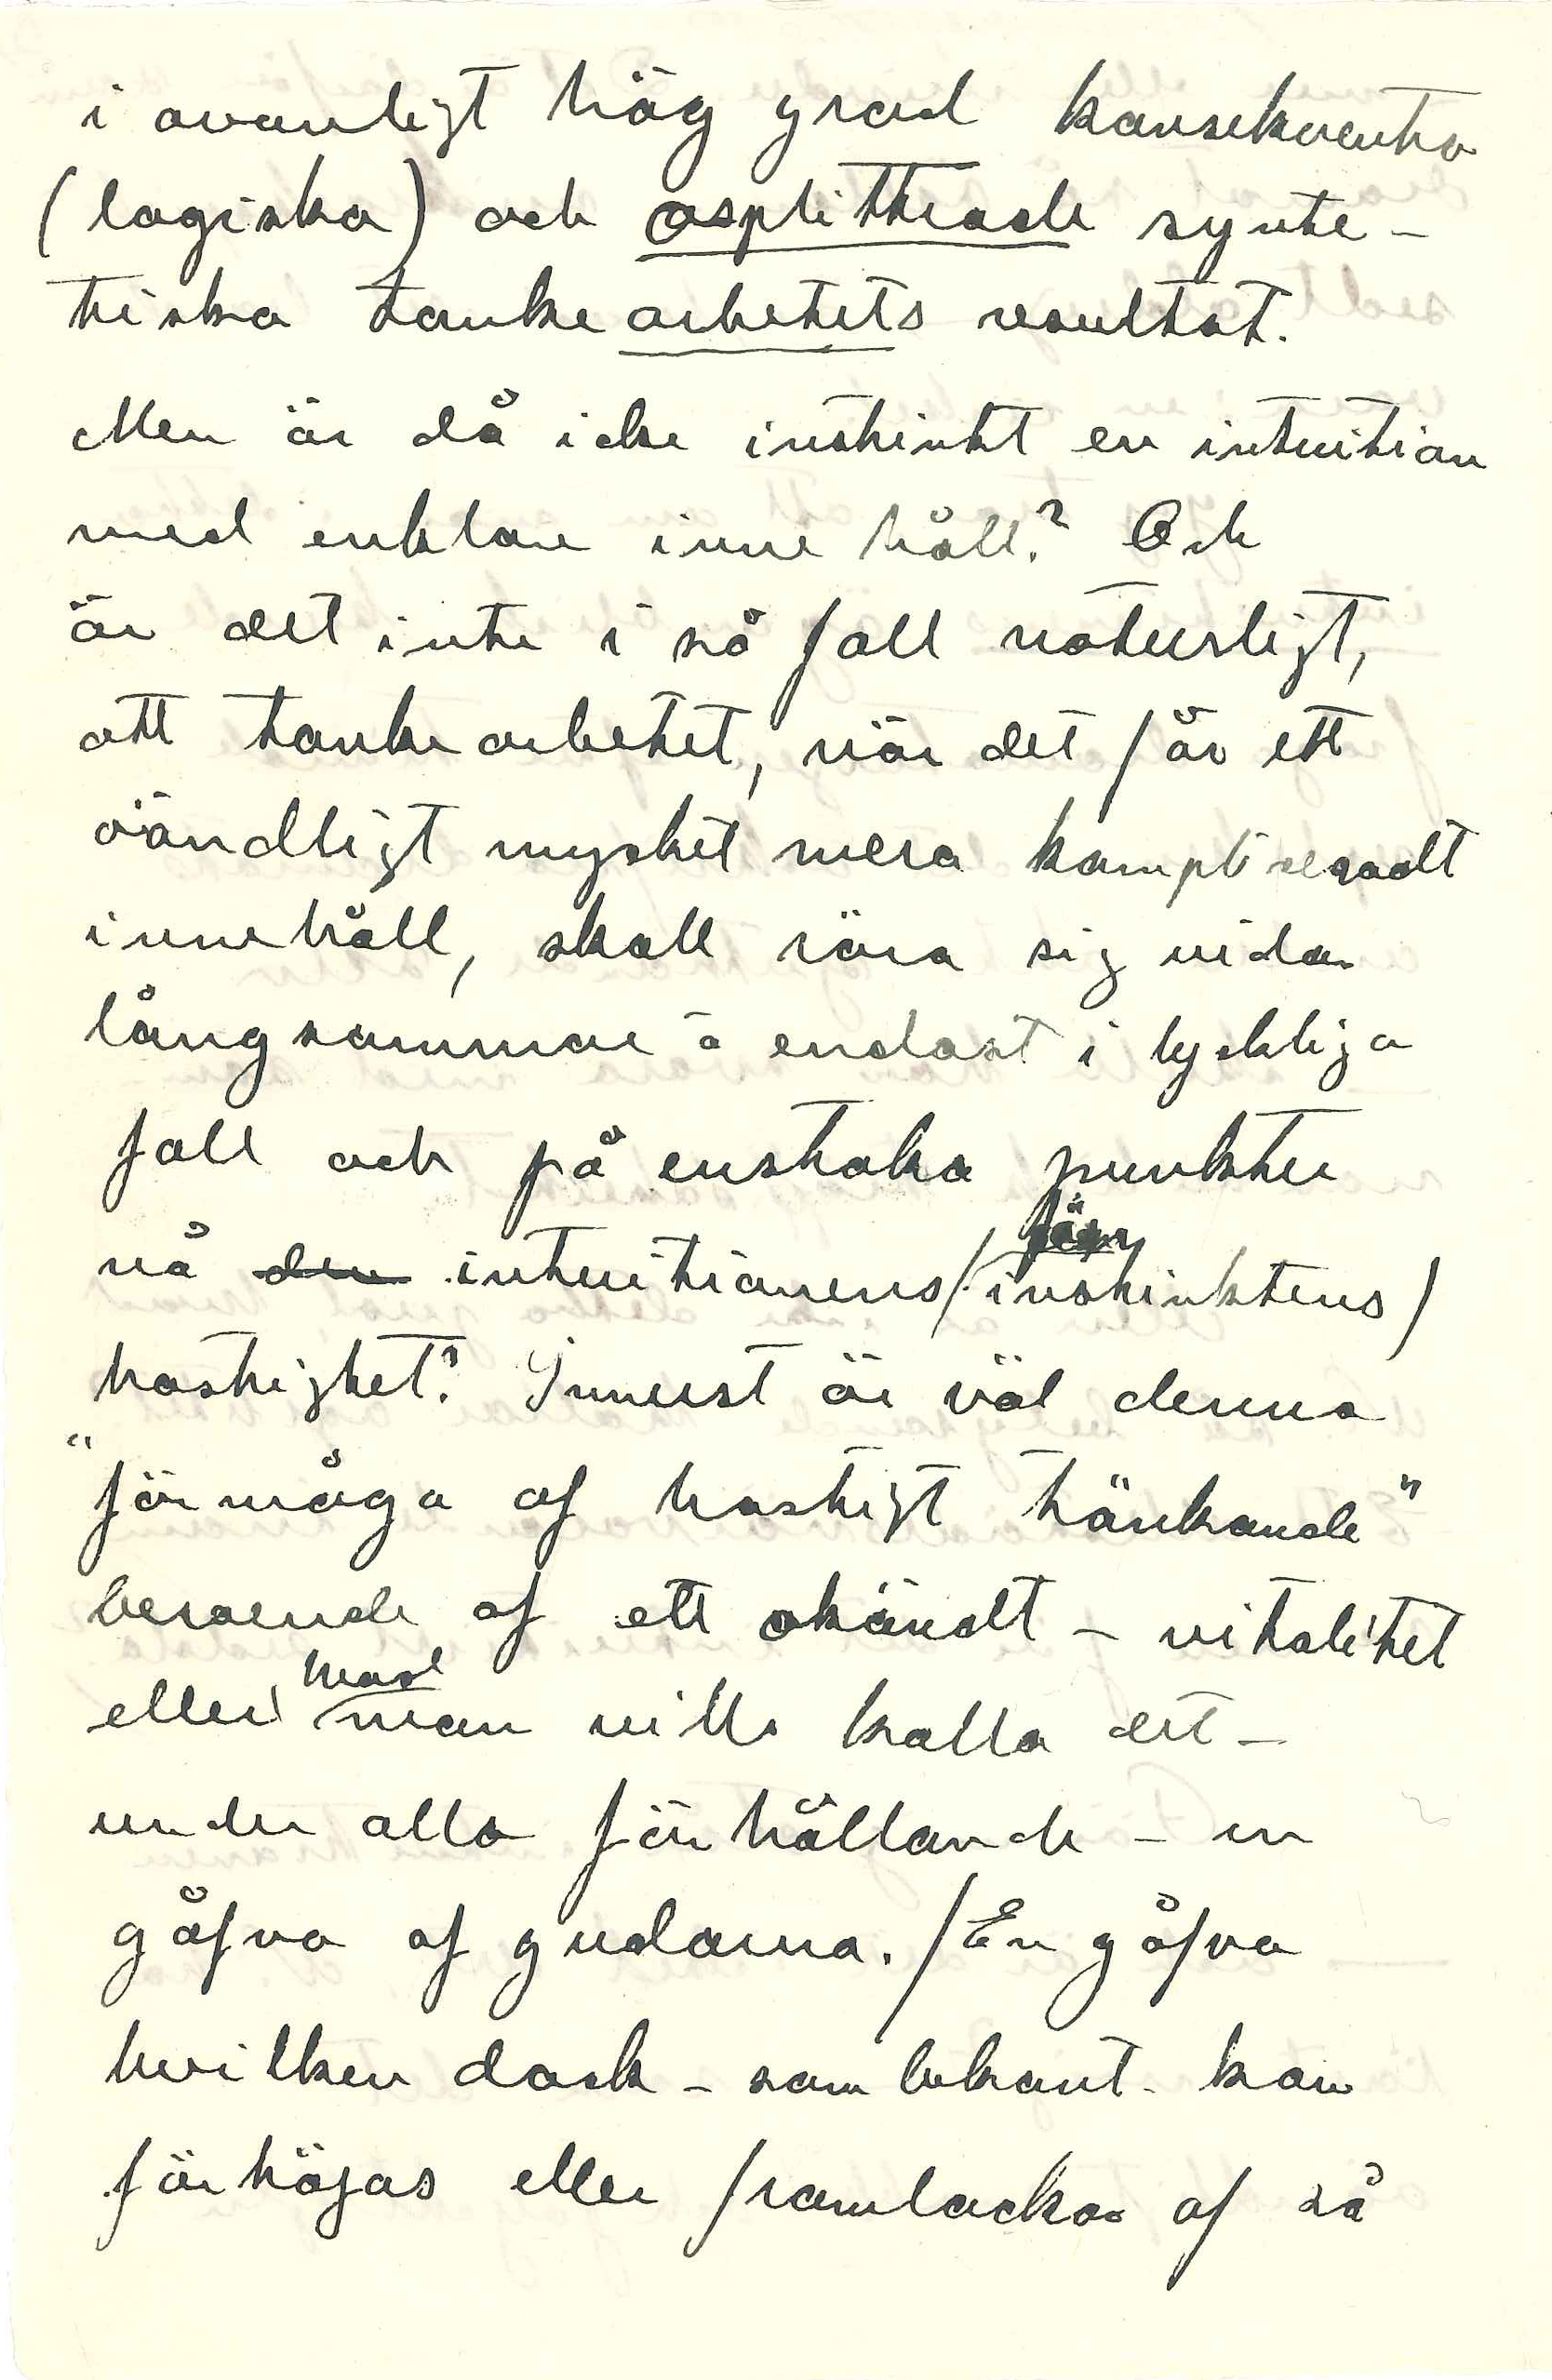 i ovanligt hög grad konsekventa
(logiska) och osplittrade synte-
tiska tankearbetets resultat.
Men är då icke instinkt en intuition
med enklare innehåll? Och
är det inte i så fall naturligt,
att tankearbetet, när det får ett
oändligt mycket mera kompliseradt
innehåll, skall röra sig vida
långsammare å endast i lyckliga
fall och på enstaka punkter
nå den intuitionens /instinktens/
hastighet? Innerst är väl denna
"förmåga af hastigt tänkande"
beroende af ett okändt - vitalitet
eller hvad man vill kalla det -
under alla förhållande - en
gåfva af gudarna. /En gåfva
hvilken dock - som bekant - kan
förhöjas eller framlockas af så